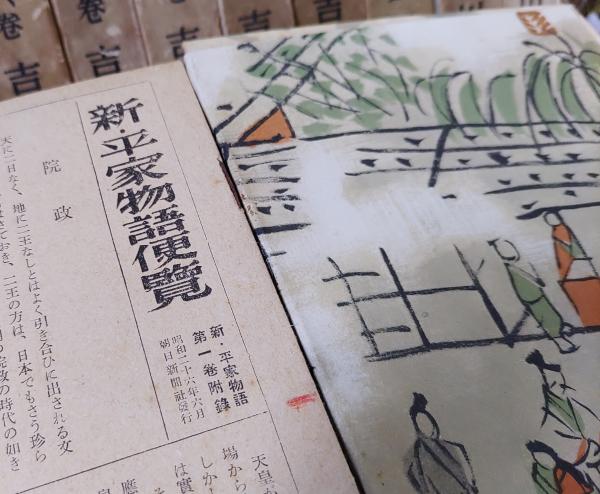 卷 吉
卷 吉
吉
吉
吉
新・平家物語便覽
新・平家物語
第一卷附錄
昭和二十六年六月
朝日新聞社發行
院政
天に二日なく、地に二王なしとはよく引き合ひに出される文
おき、二王の方は、日本でもさう珍ら
院政の時代の如き
天皇が
場から
しかし
は實